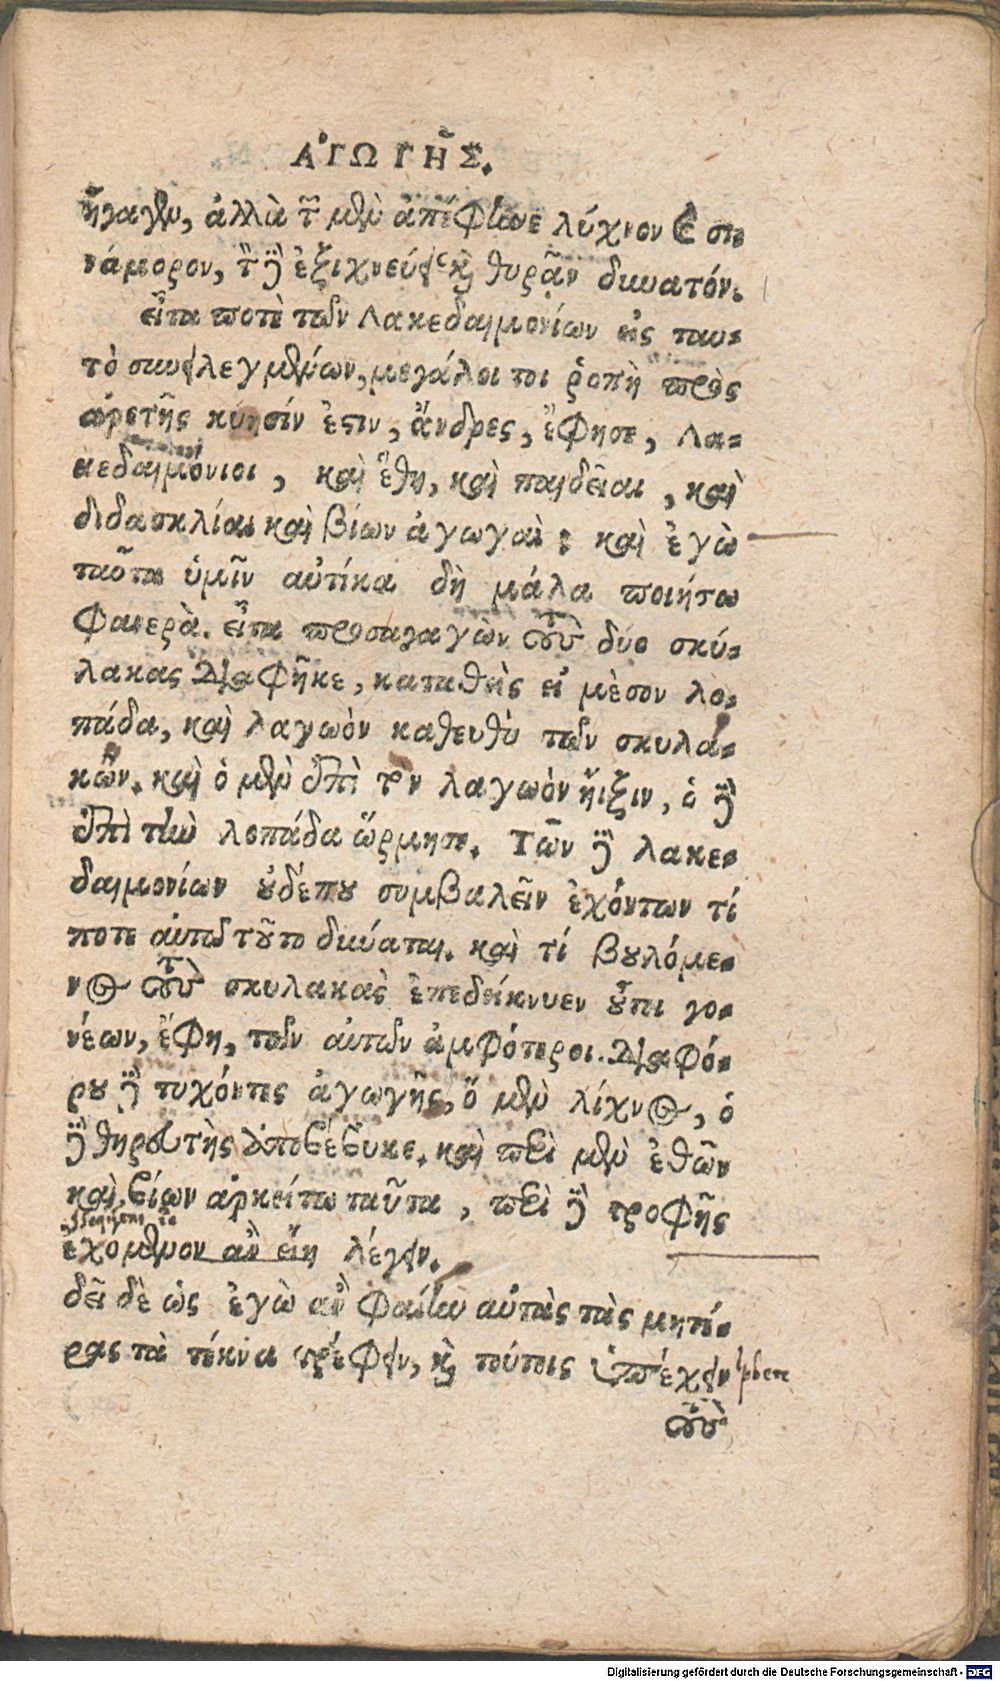 ἈΓΩΓΗ͂Σ.
ἤγαγεν, ἀλλὰ τὸν μὲν ἀπέφηνε λίχνον καὶ σι-
νάμορον, τὸν δὲ ἐξιχνεύειν καὶ θυρᾶν δυνατόν.
εἶτα ποτὲ τῶν Λακεδαιμονίων εἰς ταυ-
τὸ συνειλεγμένων, μεγάλοι τοι ῥοπὴ πρὸς
ἀρετῆς κύησίν ἐστιν, ἄνδρες, ἔφησε, Λα-
κεδαιμόνιοι, καὶ ἔθη, καὶ παιδεῖαι, καὶ
διδασκλίαι καὶ βίων ἀγωγαὶ: καὶ ἐγὼ
ταῦτα ὑμῖν αὐτίκα δὴ μάλα ποιήσω
φανερὰ. εἶτα προσαγαγὼν τοὺς δύο σκύ-
λακας διαφῆκε, καταθεὶς εἰς μὲσον λο-
πάδα, καὶ λαγωὸν κατευθὺ τῶν σκυλά-
κῶν. καὶ ὁ μὲν ἐπὶ τὸν λαγωὸν ἤιξεν, ὁ δὲ
ἐπὶ τὴν λοπάδα ὥρμησε. Τῶν δὲ λακε-
δαιμονίων οὐδέπου συμβαλεῖν ἐχόντων τί
ποτε αὐτῷ τοῦτο δύναται. καὶ τί βουλόμε-
νος τοὺς σκυλακὰς ἐπεδείκνυεν οὗτοι γο-
νέων, ἔφη, τῶν αὐτῶν ἀμφότεροι. διαφό-
ρου δὲ τυχόντες ἀγωγῆς, ὅ μὲν λίχνος, ὁ
δὲ θηρευτὴς ἀποβέβηκε. καὶ περὶ μὲν ἐθῶν
καὶ βίων ἀρκείτω ταῦτα, περὶ δὲ τροφῆς
ἐχόμενον ἂν εἴη λέγειν.
δεῖ δὲ ὡς ἐγὼ ἂν φαίην αὐτὰς τὰς μητέ-
ρας τὰ τέκνα τρέφειν, καὶ τούτοις ὑπέχειν
τοὺς
Digitalisierung gefördert durch die Deutsche Forschungsgemeinschaft - DFG